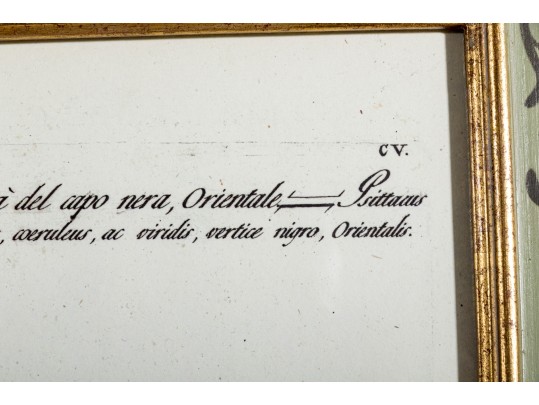 CV.
à del capo nera, Orientale, Psittacus
, cœruleus, ac viridis, vertice nigro, Orientalis.